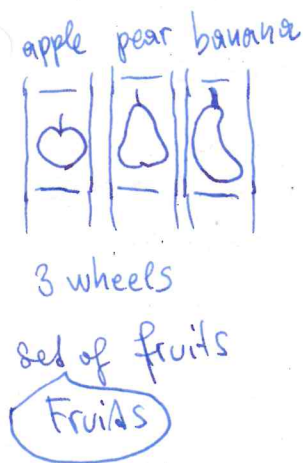 apple pear banana
3 wheels
set of fruits
Fruits